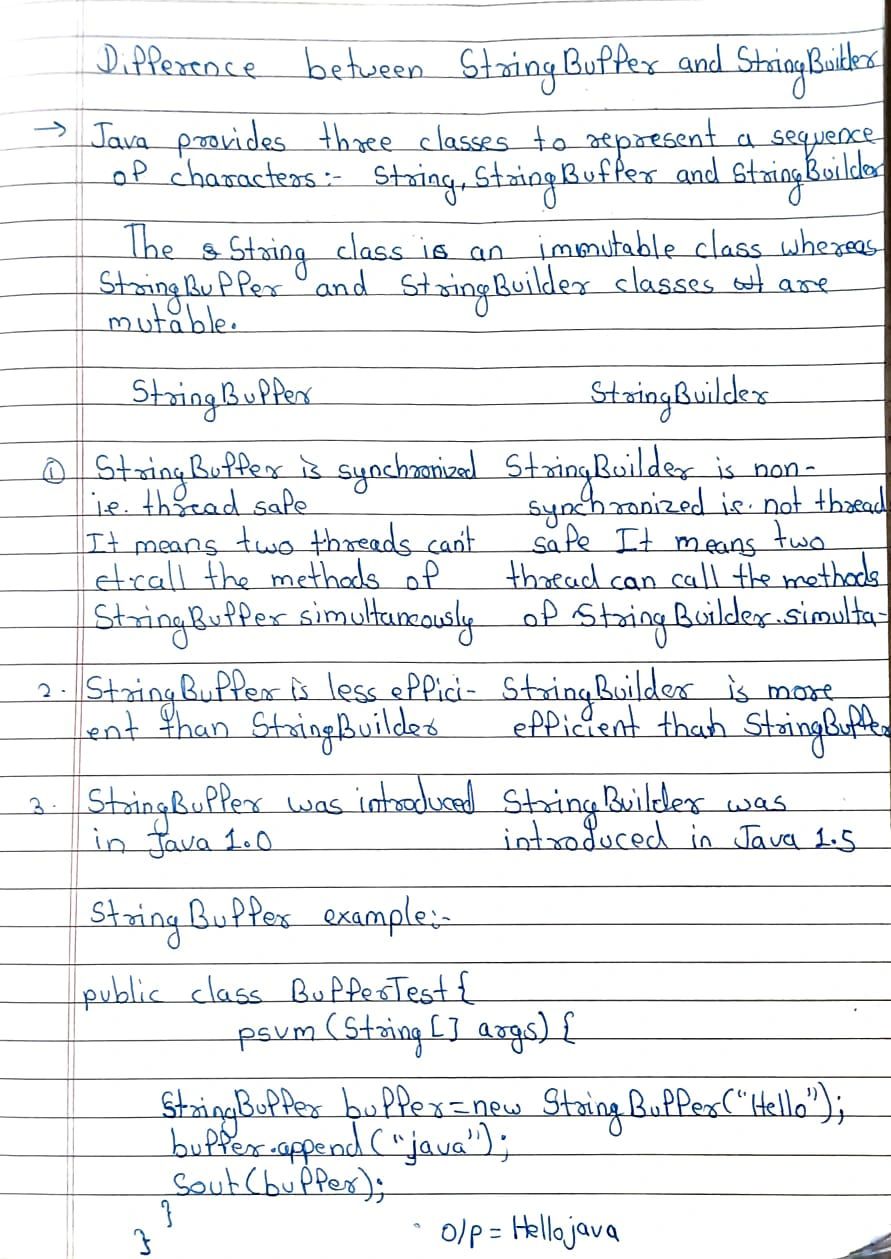 Difference between StringBuffer and StringBuilder
→ Java provides three classes to represent a sequence
of characters:- String, StringBuffer and StringBuilder
The String class is an immutable class whereas
StringBuffer and StringBuilder classes are
mutable.
StringBuffer StringBuilder
① StringBuffer is synchronized StringBuilder is non-
i.e. thread safe synchronized i.e. not thread
It means two threads can't safe It means two
call the methods of thread can call the methods
StringBuffer simultaneously of StringBuilder.simulta-
2. StringBuffer is less effici- StringBuilder is more
ent than StringBuilder efficient than StringBuffer
3. StringBuffer was introduced StringBuilder was
in Java 1.0 introduced in Java 1.5
StringBuffer example:-
public class BufferTest{
psvm (String [] args) {
StringBuffer buffer=new StringBuffer("Hello");
buffer.append("java");
Sout(buffer);
}
} O/p = Hellojava